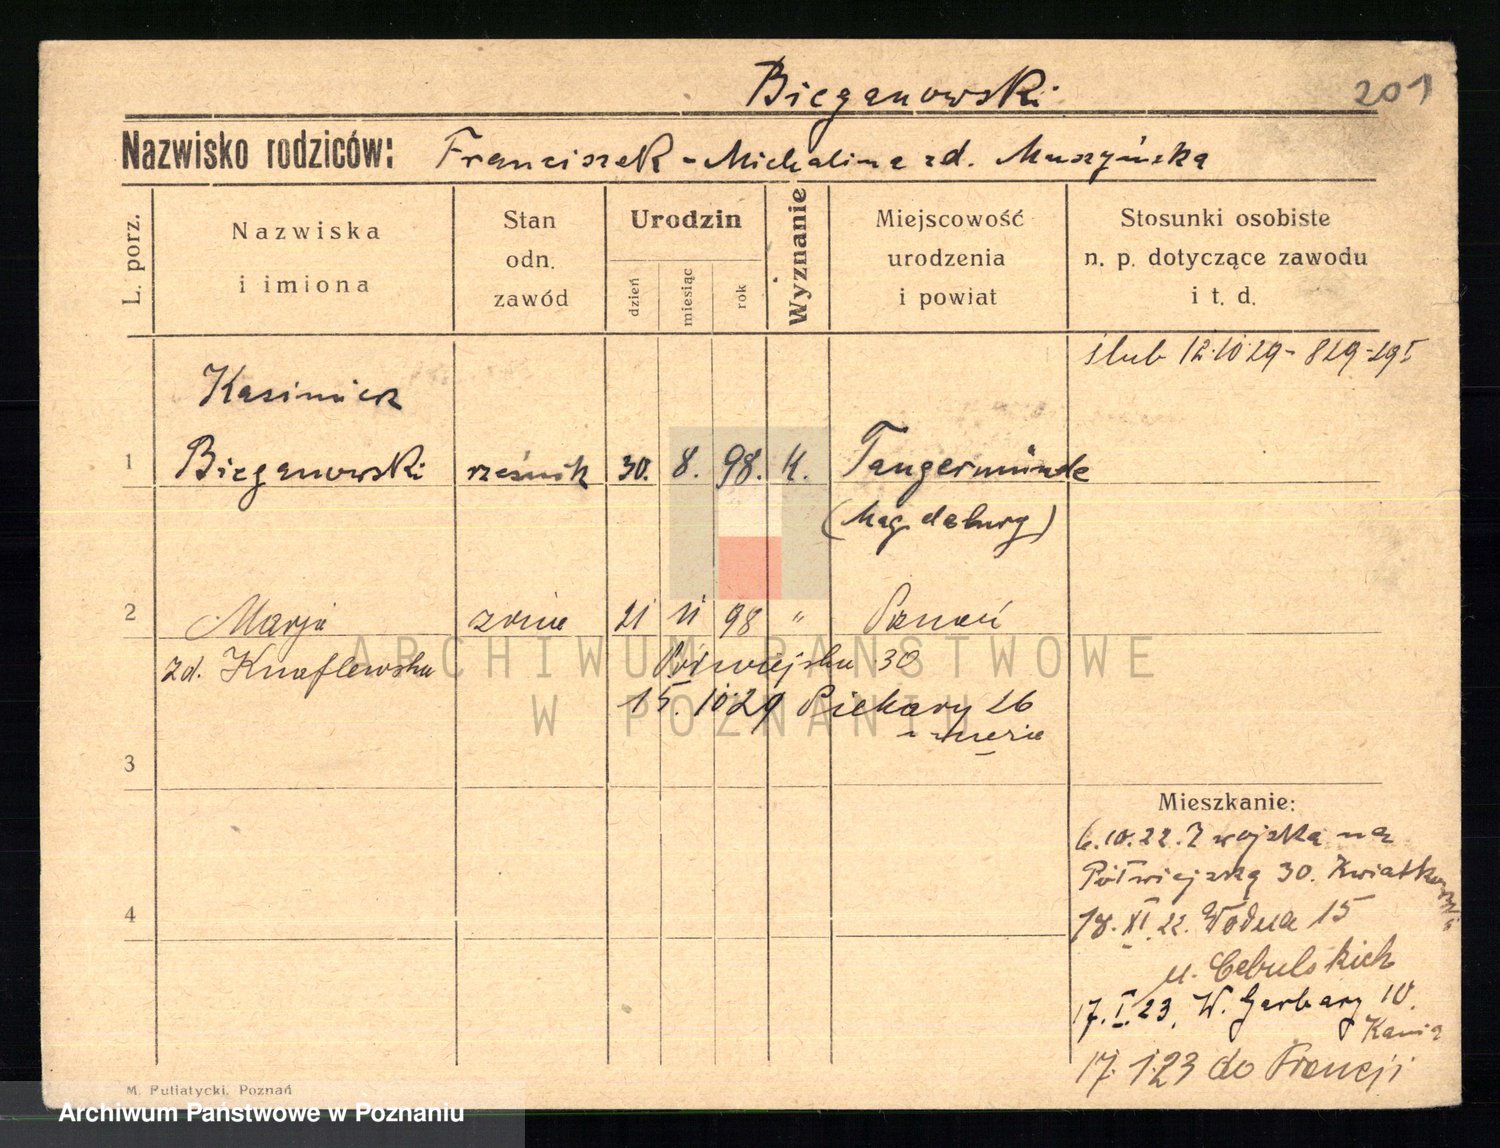 Bieganowski 201
Nazwisko rodziców: Franciszek - Michalina zd. Muszyńska
L. porz.
Nazwiska
i imiona
Stan
odn.
zawód
Urodzin
dzień
miesiąc
rok
Wyznanie
Miejscowość
urodzenia
i powiat
Stosunki osobiste
n. p. dotyczące zawodu
i t. d.
ślub 12.10.29 - 829-29 I
Kasimierz
1 Bieganowski rzeźnik 30. 8. 98. K. Tangermünde
(Magdeburg)
2 Marja żona 21 11 98 " Poznań
zd. Knaflewska Półwiejska 30
15. 10 29 Piekary 26
3
4
Mieszkanie:
6.10.22. Z wojska na
Półwiejską 30. Kwiatkowski
18. XI. 22. Wodna 15
u. Cebulskich
17. I. 23. W. Garbary 10.
Kania
17. 1.23 do Francji
M. Putiatycki, Poznań
ARCHIWUM PAŃSTWOWE
W POZNANIU
Archiwum Państwowe w Poznaniu